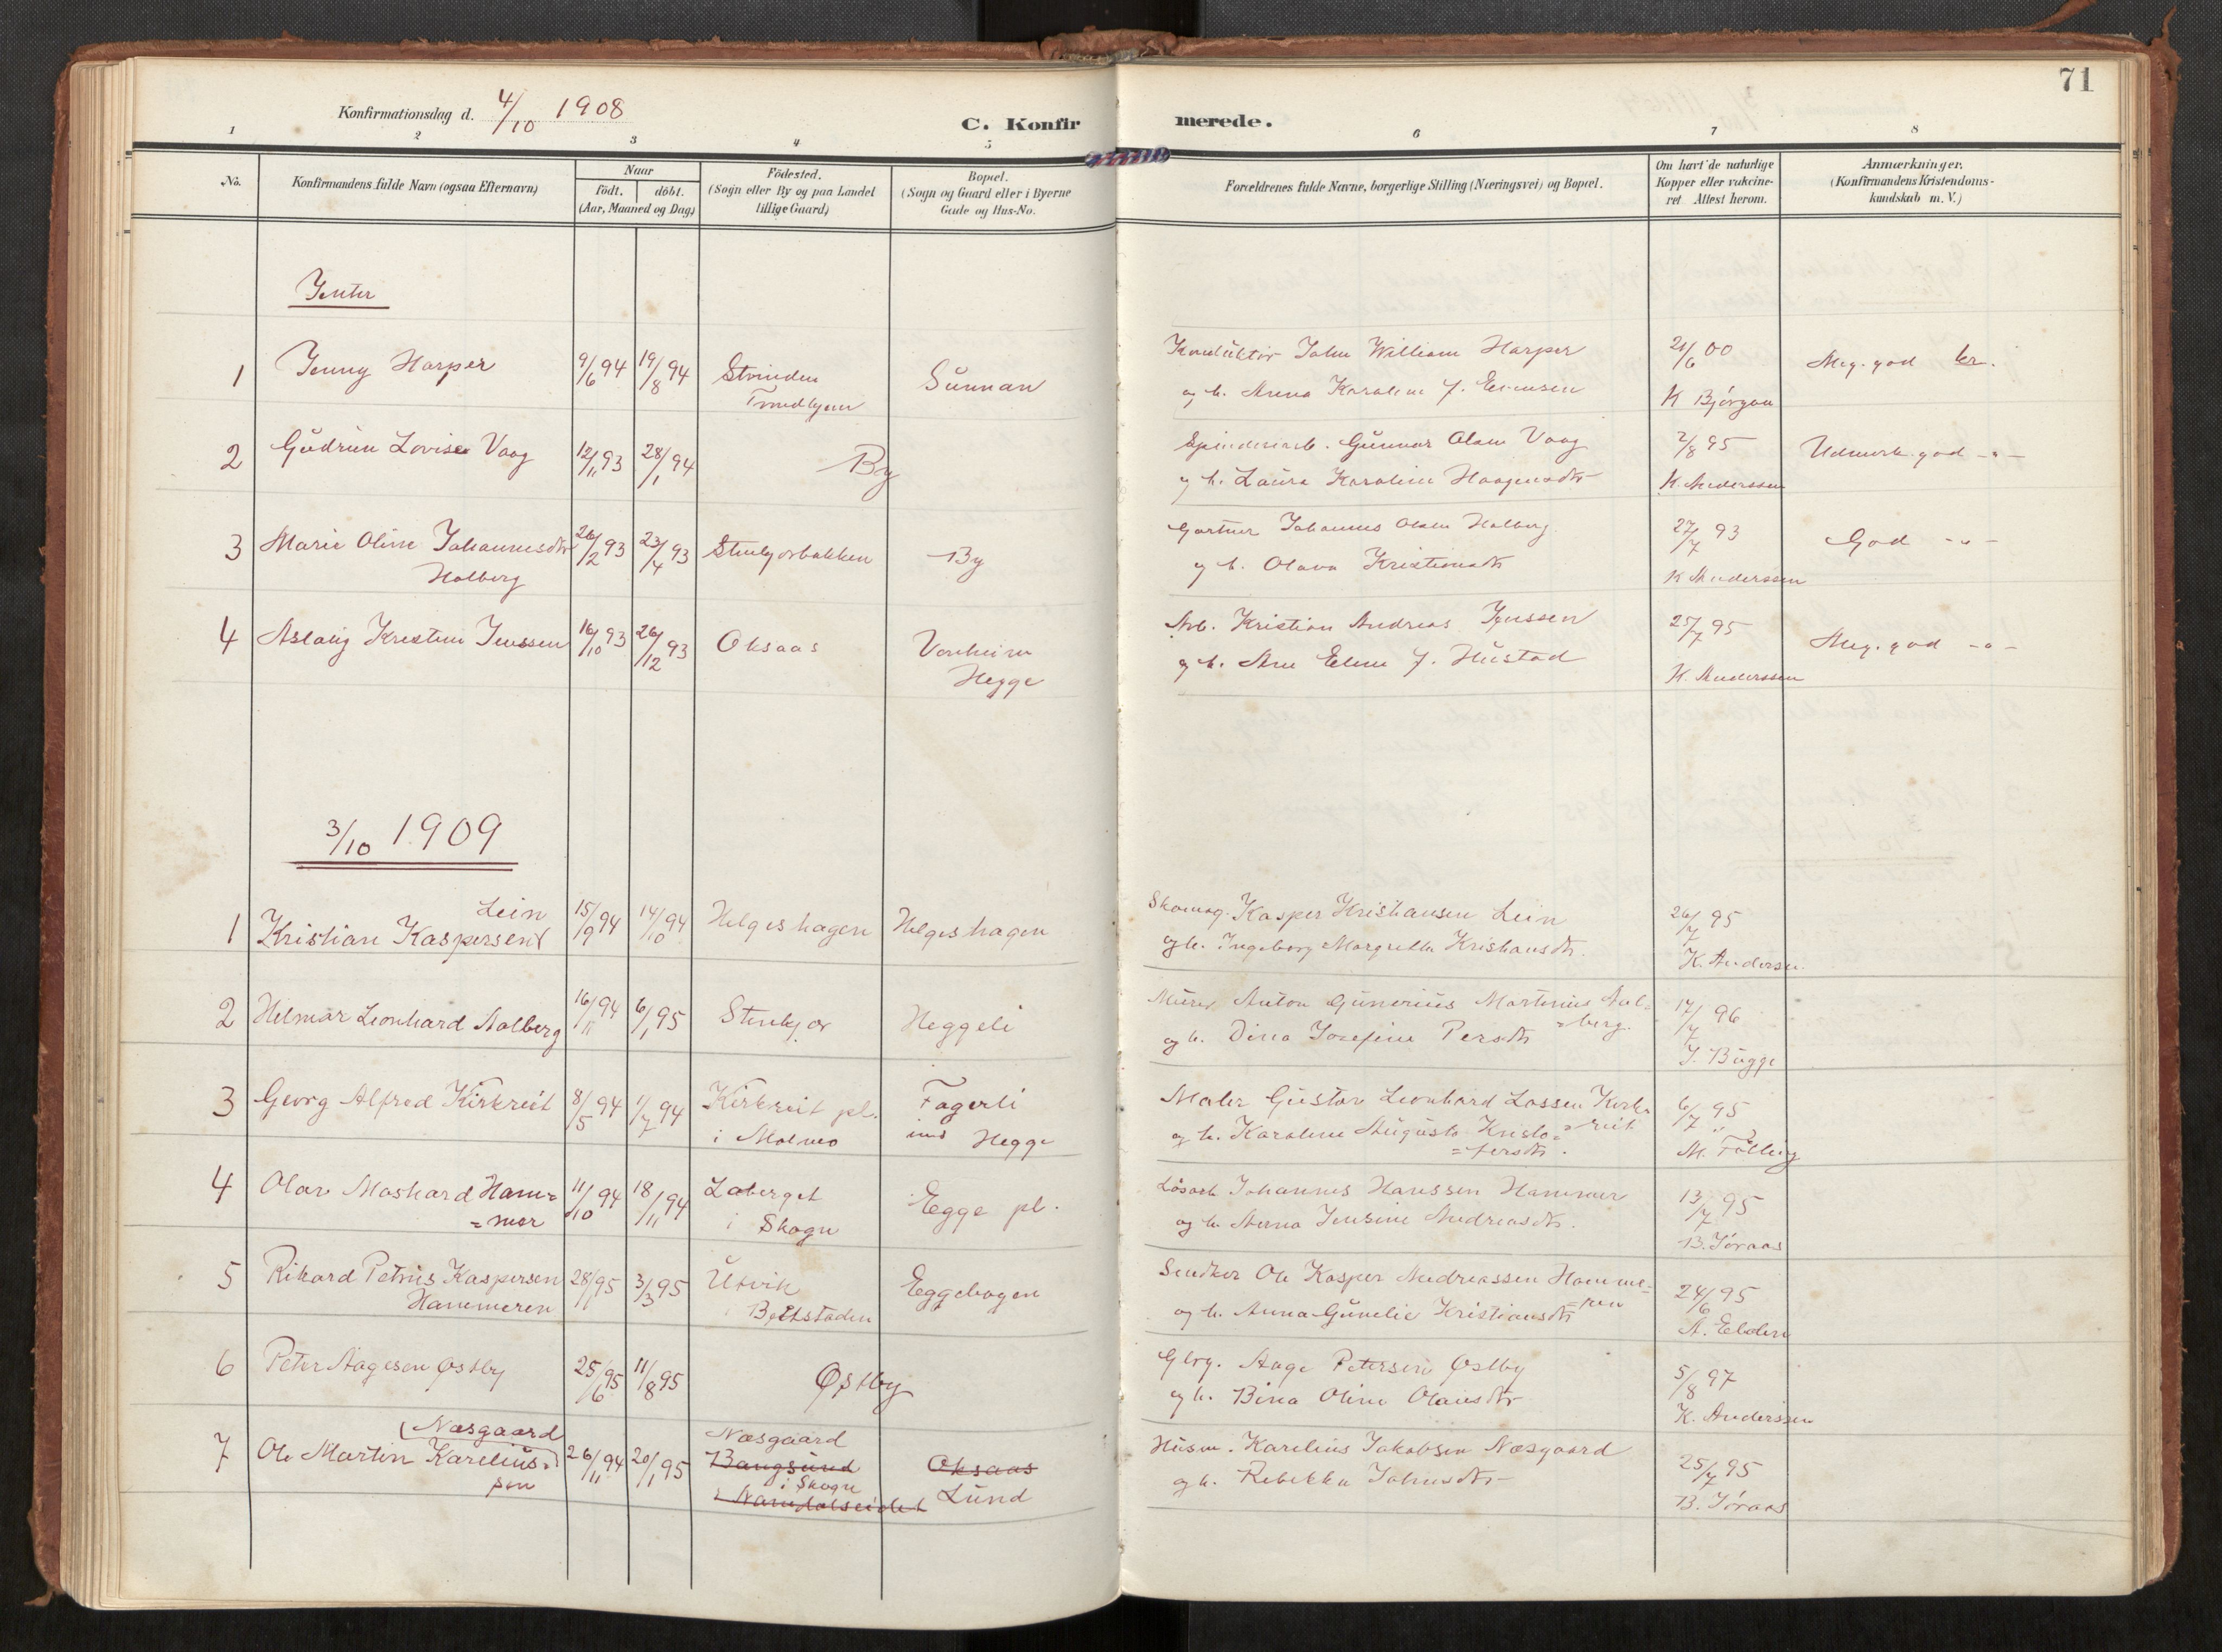 71
Konfirmationsdag d. 4/10 1908
C. Konfirmerede.
1 2 3 4 5 6 7 8
No.
Konfirmandens fulde Navn (ogsaa Efternavn)
Naar
födt. döbt.
(Aar, Maaned og Dag)
Födested.
(Sogn eller By og paa Landet
tillige Gaard)
Bopæl.
(Sogn og Gaard eller i Byerne
Gade og Hus-No.
Forældrenes fulde Navne, borgerlige Stilling (Næringsvei) og Bopæl.
Om havt de naturlige
Kopper eller vakcine-
ret Attest herom.
Anmærkninger.
(Konfirmandens Kristendoms-
kundskab m. V.)
Jenter
1 Jenny Harper 9/6 94 19/8 94 Strinden Sunnan Konduktør John William Harper 21/6 00 Meg. god kr.
Trondhjem og h. Anna Karoline f. K Bjørgan
2 Gudrun Lovise Vaag 12/11 93 28/1 94 By Spinderiarb. Gunnar Olsen Vaag 2/8 95 Udmerk. god -"-
og h. Laura Karoline Haagensdtr K. Anderssen
3 Marie Oline Johannesdtr 26/2 93 23/4 93 Stenkjærbakken By Gartner Johannes Olsen Halberg 27/7 93 God -"-
Halberg og h. Olava Kristiansdtr K Anderssen
4 Aslaug Kristine Jenssen 16/10 93 26/12 93 Oksaas Vonheim Arb. Kristian Andreas Jenssen 25/7 95 Meg. god -"-
Hegge og h. Ane Elene f. Hustad K. Anderssen
3/10 1909
Lein
1 Kristian Kaspersen 15/9 94 14/10 94 Helgeshagen Helgeshagen Skomag. Kasper Kristiansen Lein 26/7 95
og h. Ingeborg Margrethe Kristiansdtr. K. Andersen
2 Hilmar Leonhard Aalberg 16/11 94 6/1 95 Stenkjær Heggeli Murer Anton Gunerius Martinus Aal- 17/7 96
=berg.
og h. Dina Josefine Persdtr J. Bugge
3 Georg Alfred Kirkreit 8/5 94 1/7 94 Kirkreit pl. Fagerli Maler Gustav Leonhard Lassen Kirk= 6/7 95
i Malmo und Hegge og h. Karoline Augusta Kristo= =reit
=fersdtr. M. Følling
4 Olav Maskard Ham= 11/10 94 18/11 94 Laberget Egge pl. Løsarb Johannes Hanssen Hammer 13/7 95
=mer i Skogn og h. Anna Jensine Andreasdtr. B. Joraas
5 Rikard Petrus Kaspersen 28/1 95 3/3 95 Utvik Eggebogen Ole Kasper Andreassen Hamme= 24/6 95
Hammeren i Beitstaden og h. Anna Gunelie Kristiansdtr =ren A. Elden
6 Peter Aagesen Østby 25/6 95 11/8 95 Østby Gbrg. Aage Petersen Østby 5/8 97
og h. Bina Oline Olausdtr K. Anderssen
(Næsgaard)
7 Ole Martin Karelius= 26/11 94 20/1 95 Næsgaard Husm. Karelius Jakobsen Næsgaard 25/7 95
sen Bangsund Oksaas og h. Rebekka Johnsdtr B. Joraas
i Skogn Lund
i Namdalseidet